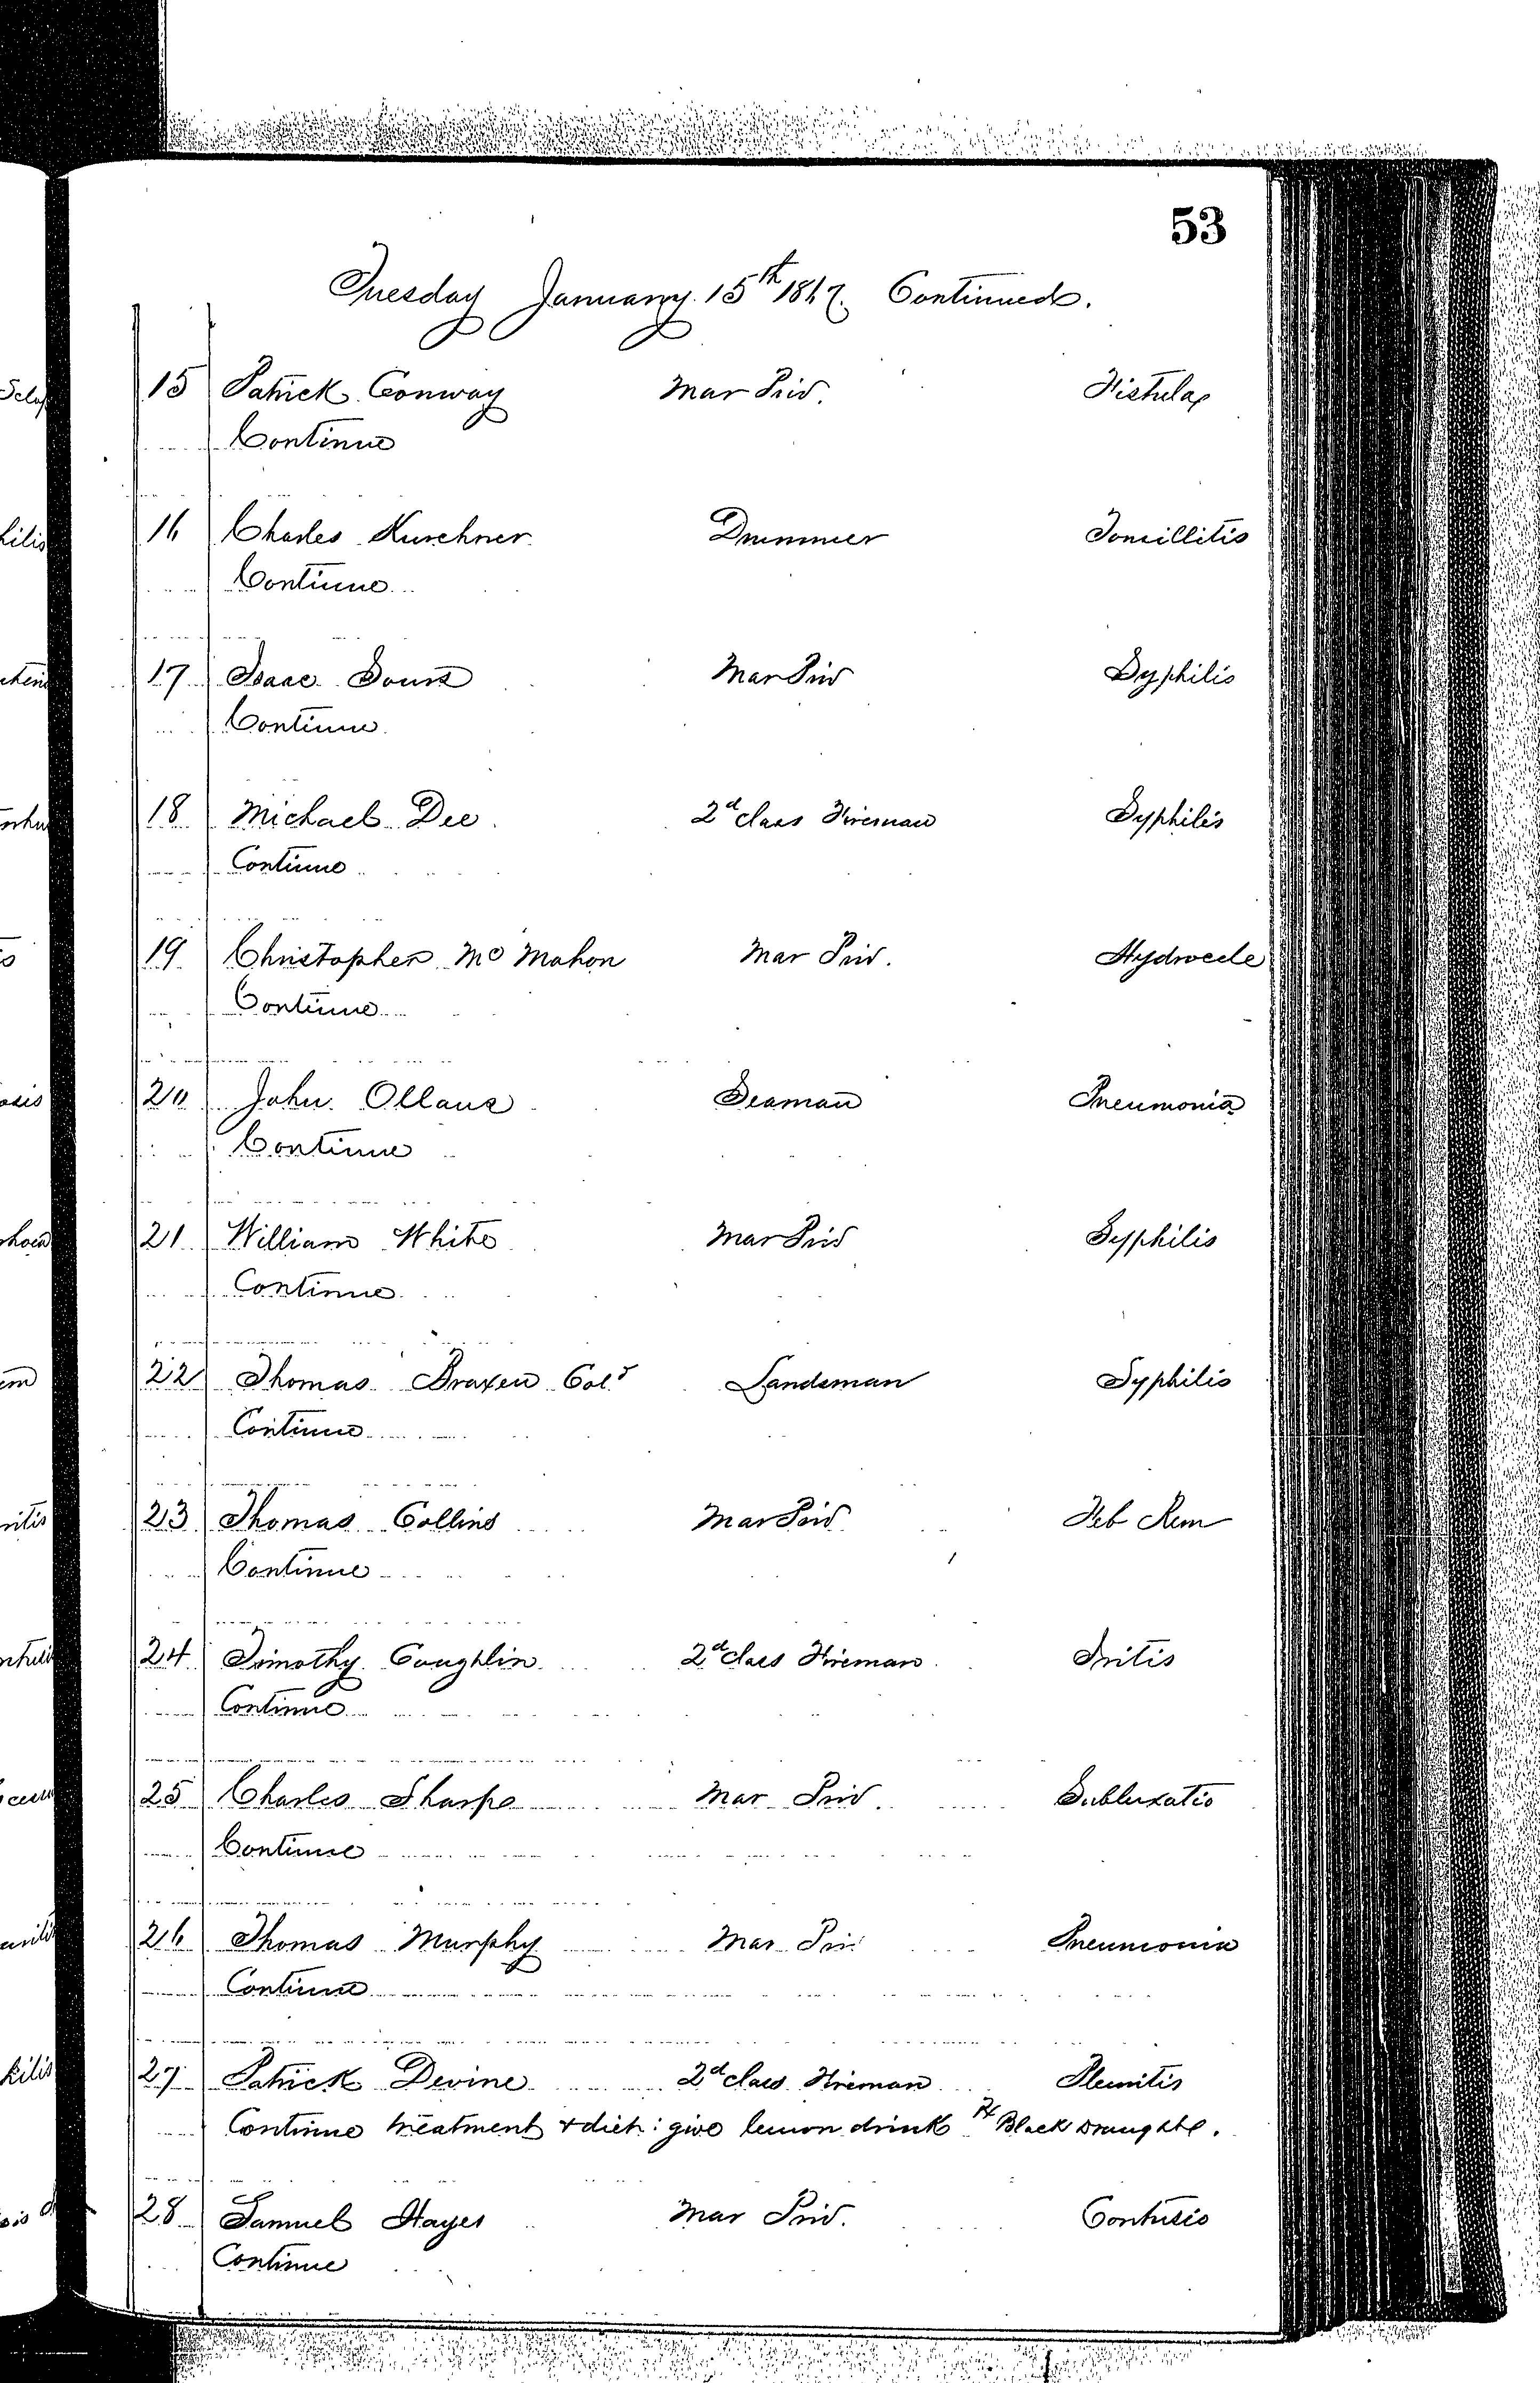 53
Tuesday January 15th 1867. Continued.
15 Patrick Conway Mar Priv. Fistula
Continue
16 Charles Kurchner Drummer Tonsillitis
Continue
17 Isaac Mar Priv Syphilis
Continue
18 Michael Dee 2d class Fireman Syphilis
Continue
19 Christopher Mc Mahon Mar Priv. Hydrocele
Continue
20 John Ollaus Seaman Pneumonia
Continue
21 William White Mar Priv Syphilis
Continue
22 Thomas Braxen Cold Landsman Syphilis
Continue
23 Thomas Collins Mar Priv Feb Rem
Continue
24 Timothy Coughlin 2d class Fireman Iritis
Continue
25 Charles Sharpe Mar Priv. Subluxatio
Continue
26 Thomas Murphy Mar Priv Pneumonia
Continue
27 Patrick Devine 2d class Fireman Pleuritis
Continue treatment + diet: give lemon drink Rx Black Draught.
28 Samuel Hayes Mar Priv. Contusio
Continue